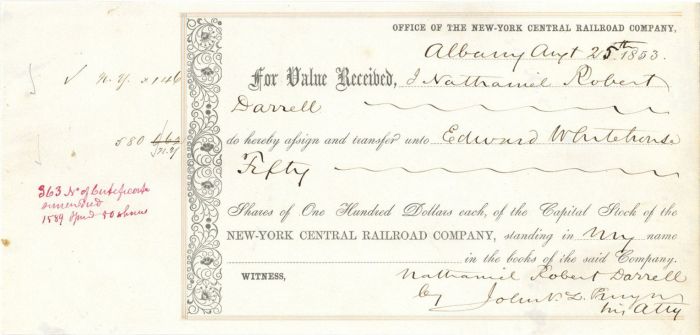 OFFICE OF THE NEW-YORK CENTRAL RAILROAD COMPANY,
Albany Augt 25th 1853.
For Value Received, I Nathaniel Robert
Darrell
do hereby assign and transfer unto Edward Whitehouse
Fifty
Shares of One Hundred Dollars each, of the Capital Stock of the
NEW-YORK CENTRAL RAILROAD COMPANY, standing in My name
in the books of the said Company.
WITNESS,
Nathaniel Robert Darrell
by John V. L. Pruyn
his Atty
N. Y.
580
363 No of Certificate
surrendered
1584 50 shares